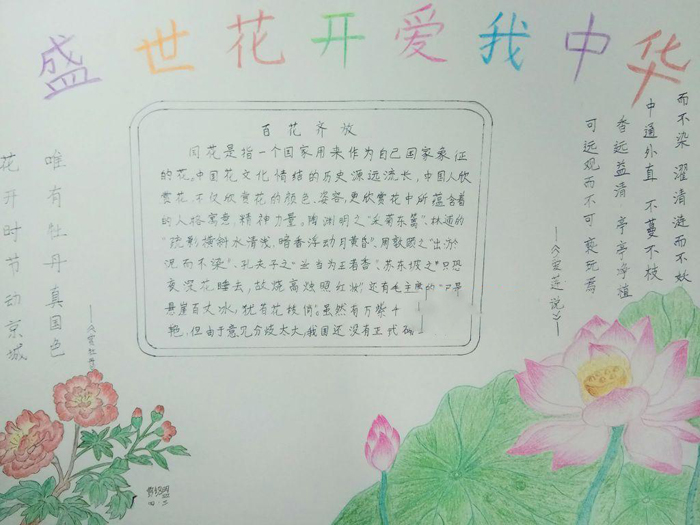 盛世花开爱我中华
百花齐放
国花是指一个国家用来作为自己国家象征
的花。中国花文化情结的历史源远流长,中国人欣
赏花,不仅欣赏花的颜色、姿容,更欣赏花中所蕴含着
的人格寓意、精神力量。陶渊明之"采菊东篱",林逋的
"疏影横斜水清浅,暗香浮动月黄昏",周敦颐之"出淤
泥而不染"、孔夫子之"兰当为王者香"、苏东坡之"只恐
夜深花睡去,故烧高烛照红妆"还有毛主席的"已是
悬崖百丈冰,犹有花枝俏"。虽然有万紫千
艳,但由于意见分歧太大,我国还没有正代
而不染 濯清涟而不妖
中通外直 不蔓不枝
香远益清 亭亭净植
可远观而不可亵玩焉
——《爱莲说》——
唯有牡丹真国色
花开时节动京城